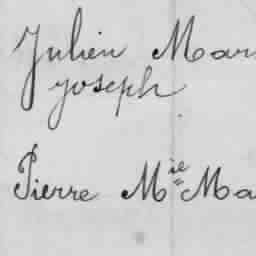 Julien Mar
Joseph
Pierre Mie Ma